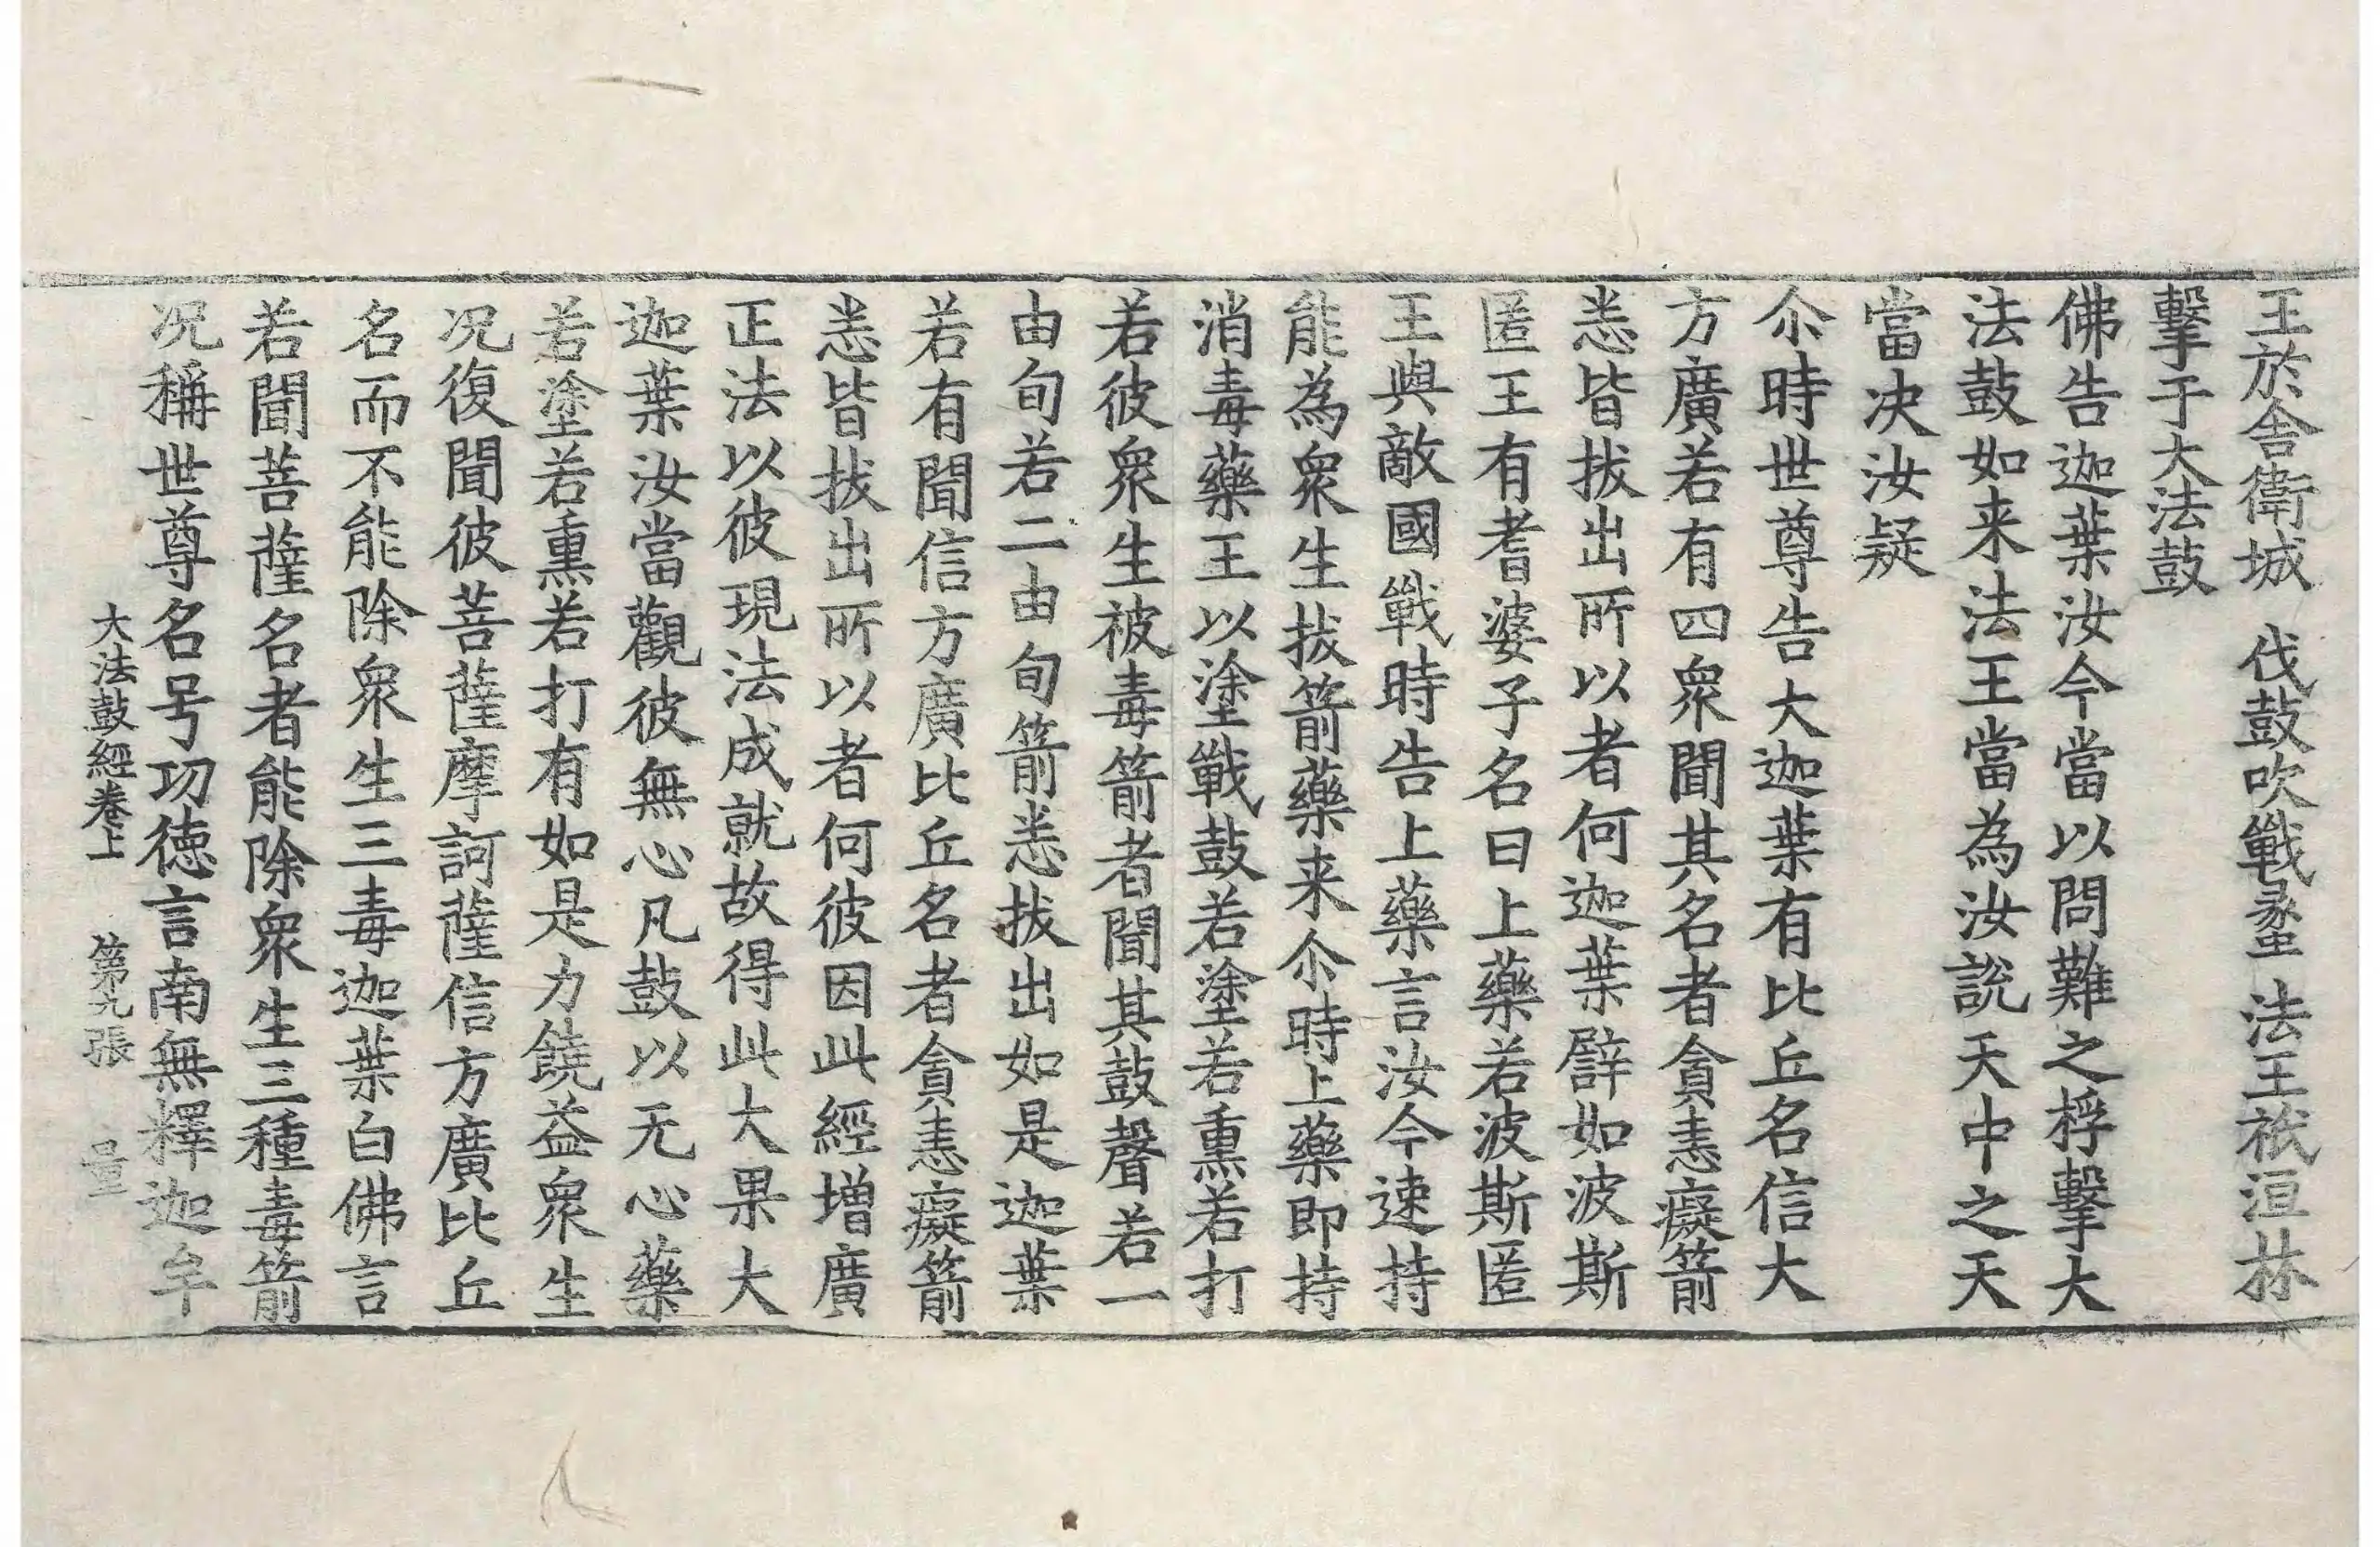 王於舍衛城　伐鼓吹戰蠡　法王祇洹林
擊于大法鼓
佛告迦葉汝今當以問難之桴擊大
法鼓如来法王當為汝說天中之天
當决汝疑
尒時世尊告大迦葉有比丘名信大
方廣若有四衆聞其名者貪恚癡箭
悉皆拔出所以者何迦葉譬如波斯
匿王有耆婆子名曰上藥若波斯匿
王與敵國戰時告上藥言汝今速持
能為衆生拔箭藥来尒時上藥即持
消毒藥王以塗戰鼓若塗若熏若打
若彼衆生被毒箭者聞其鼓聲若一
由旬若二由旬箭悉拔出如是迦葉
若有聞信方廣比丘名者貪恚癡箭
悉皆拔出所以者何彼因此經增廣
正法以彼現法成就故得此大果大
迦葉汝當觀彼無心凡鼓以无心藥
若塗若熏若打有如是力饒益衆生
况復聞彼菩薩摩訶薩信方廣比丘
名而不能除衆生三毒迦葉白佛言
若聞菩薩名者能除衆生三種毒箭
况稱世尊名号功德言南無釋迦牟
大法鼓經卷上　第九張　量